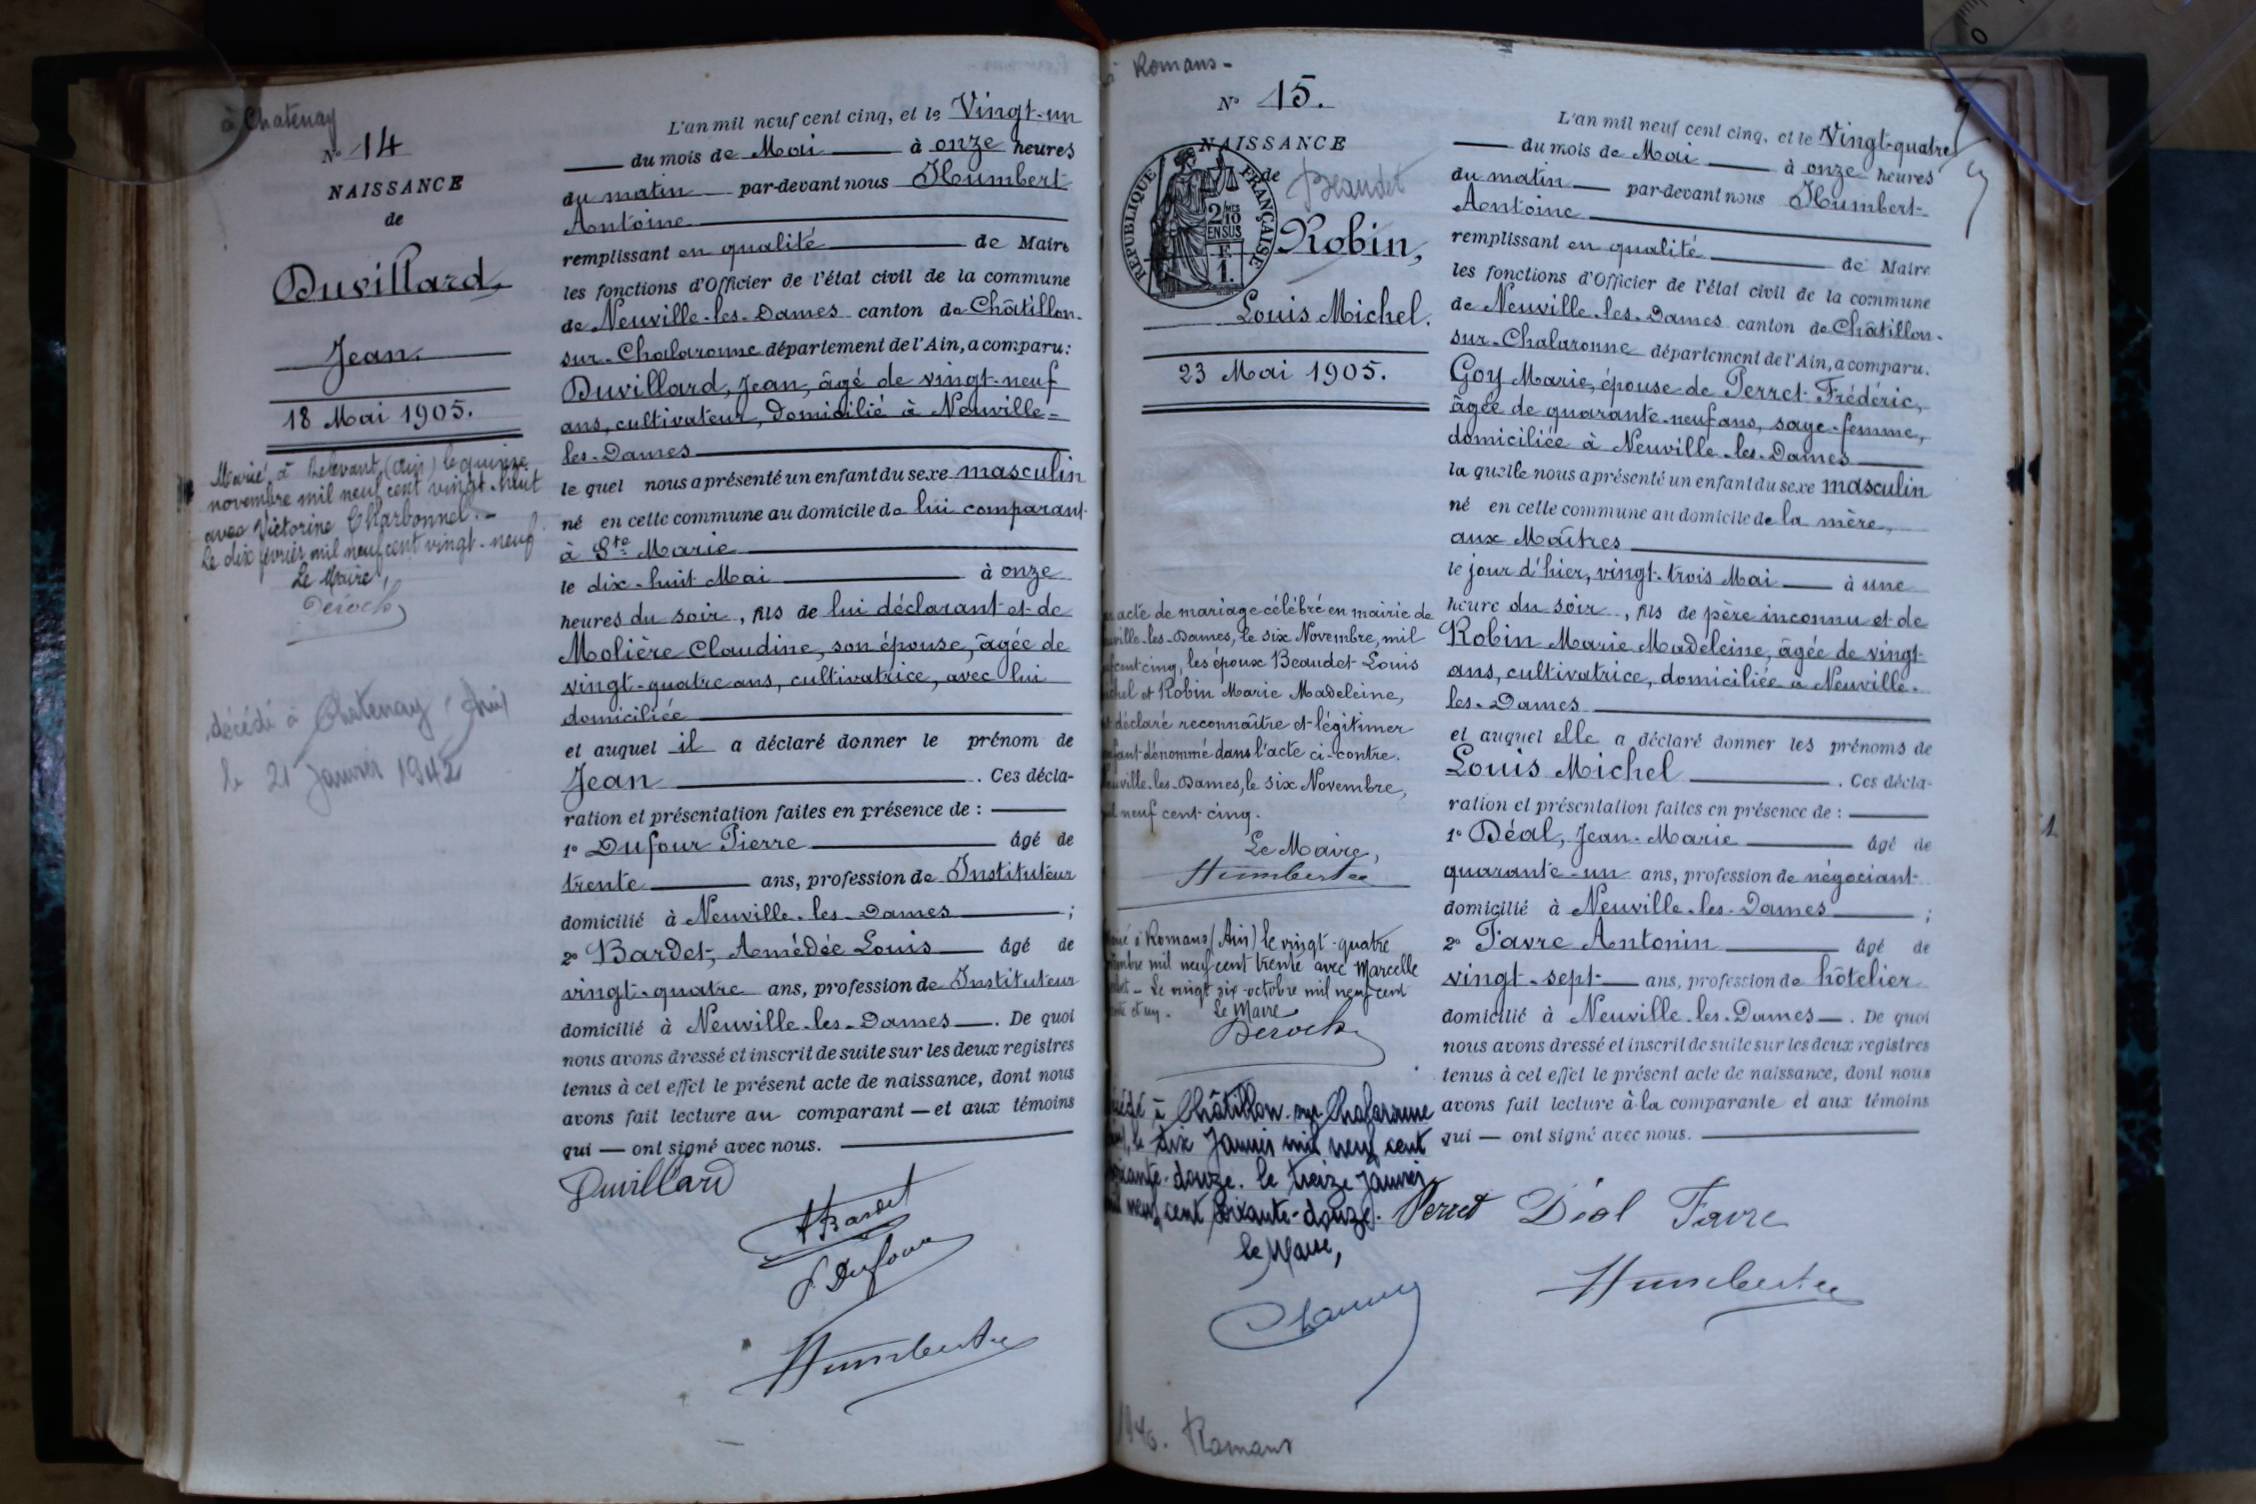 à Chatenay
N° 14
NAISSANCE
de
Duvillard,
Jean.
18 Mai 1905.
Marié à Relevant (Ain) le quinze
novembre mil neuf cent vingt-huit
avec Victorine Charbonnel.-
Le dix février mil neuf cent vingt-neuf
Le Maire,
décédé à Chatenay
le 21 Janvier 1942
L'an mil neuf cent cinq, et le Vingt-un
du mois de Mai à onze heures
du matin par-devant nous Humbert
Antoine
remplissant en qualité de Maire
les fonctions d'Officier de l'état civil de la commune
de Neuville-les-Dames canton de Châtillon-
sur-Chalaronne département de l'Ain, a comparu:
Duvillard, Jean, âgé de vingt-neuf
ans, cultivateur, domicilié à Neuville=
les-Dames
le quel nous a présenté un enfant du sexe masculin
né en cette commune au domicile de lui comparant
à Ste Marie
le dix-huit Mai à onze
heures du soir, fils de lui déclarant et de
Molière Claudine, son épouse, âgée de
vingt-quatre ans, cultivatrice, avec lui
domiciliée
et auquel il a déclaré donner le prénom de
Jean . Ces décla-
ration et présentation faites en présence de :
1° Dufour Pierre âgé de
trente ans, profession de Instituteur
domicilié à Neuville-les-Dames ;
2° Bardet, Amédée Louis âgé de
vingt-quatre ans, profession de Instituteur
domicilié à Neuville-les-Dames . De quoi
nous avons dressé et inscrit de suite sur les deux registres
tenus à cet effet le présent acte de naissance, dont nous
avons fait lecture au comparant — et aux témoins
qui — ont signé avec nous.
Duvillard
ABardet
P Dufour
Humbert
à Romans-
N° 15.
NAISSANCE
de Beaudet
REPUBLIQUE FRANÇAISE
2/10
EN SUS
F
1
Robin,
Louis Michel.
23 Mai 1905.
acte de mariage célébré en mairie de
ville-les-Dames, le six Novembre, mil
cent cinq, les époux Beaudet Louis
et Robin Marie Madeleine,
déclaré reconnaître et légitimer
dénommé dans l'acte ci-contre.
ville-les-Dames, le six Novembre,
neuf cent cinq.
Le Maire,
Humbert
à Romans (Ain) le vingt-quatre
mil neuf cent trente avec Marcelle
Le vingt six octobre mil neuf cent
et un. Le Maire
à Châtillon-sur-Chalaronne
le dix Janvier mil neuf cent
douze. le treize Janvier
neuf cent soixante-douze.
le Maire,
1946. Romans
L'an mil neuf cent cinq, et le Vingt-quatre
du mois de Mai à onze heures
du matin par-devant nous Humbert
Antoine
remplissant en qualité de Maire
les fonctions d'Officier de l'état civil de la commune
de Neuville-les-Dames canton de Châtillon-
sur-Chalaronne département de l'Ain, a comparu.
Goy Marie, épouse de Perret Frédéric,
âgée de quarante-neuf ans, sage-femme,
domiciliée à Neuville-les-Dames
la quelle nous a présenté un enfant du sexe masculin
né en cette commune au domicile de la mère,
aux Maîtres
le jour d'hier, vingt-trois Mai à une
heure du soir, fils de père inconnu et de
Robin Marie Madeleine, âgée de vingt
ans, cultivatrice, domiciliée à Neuville-
les-Dames
et auquel elle a déclaré donner les prénoms de
Louis Michel . Ces décla-
ration et présentation faites en présence de :
1° Déal, Jean-Marie âgé de
quarante-un ans, profession de négociant
domicilié à Neuville-les-Dames ;
2° Favre Antonin âgé de
vingt-sept ans, profession de hôtelier
domicilié à Neuville-les-Dames . De quoi
nous avons dressé et inscrit de suite sur les deux registres
tenus à cet effet le présent acte de naissance, dont nous
avons fait lecture à la comparante et aux témoins
qui — ont signé avec nous.
Perret Déal Favre
Humbert